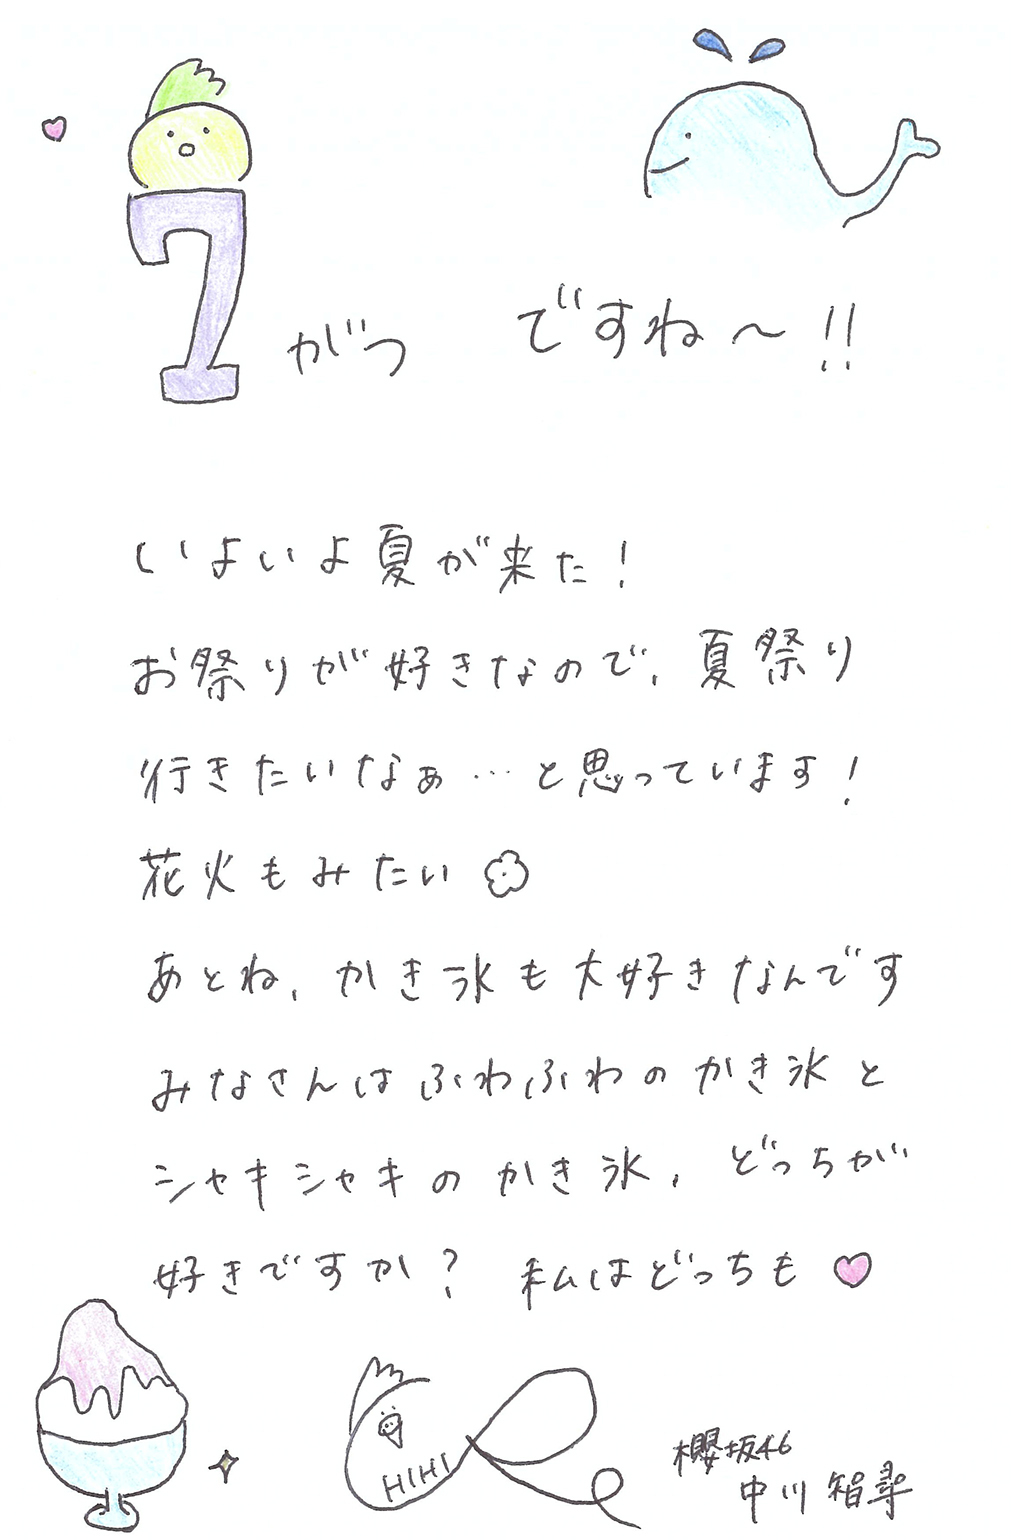 7がつ ですね〜!!
いよいよ夏が来た!
お祭りが好きなので、夏祭り
行きたいなぁ…と思っています!
花火もみたい
あとね、かき氷も大好きなんです
みなさんはふわふわのかき氷と
シャキシャキのかき氷、どっちが
好きですか? 私はどっちも
HIHI
櫻坂46
中川智尋